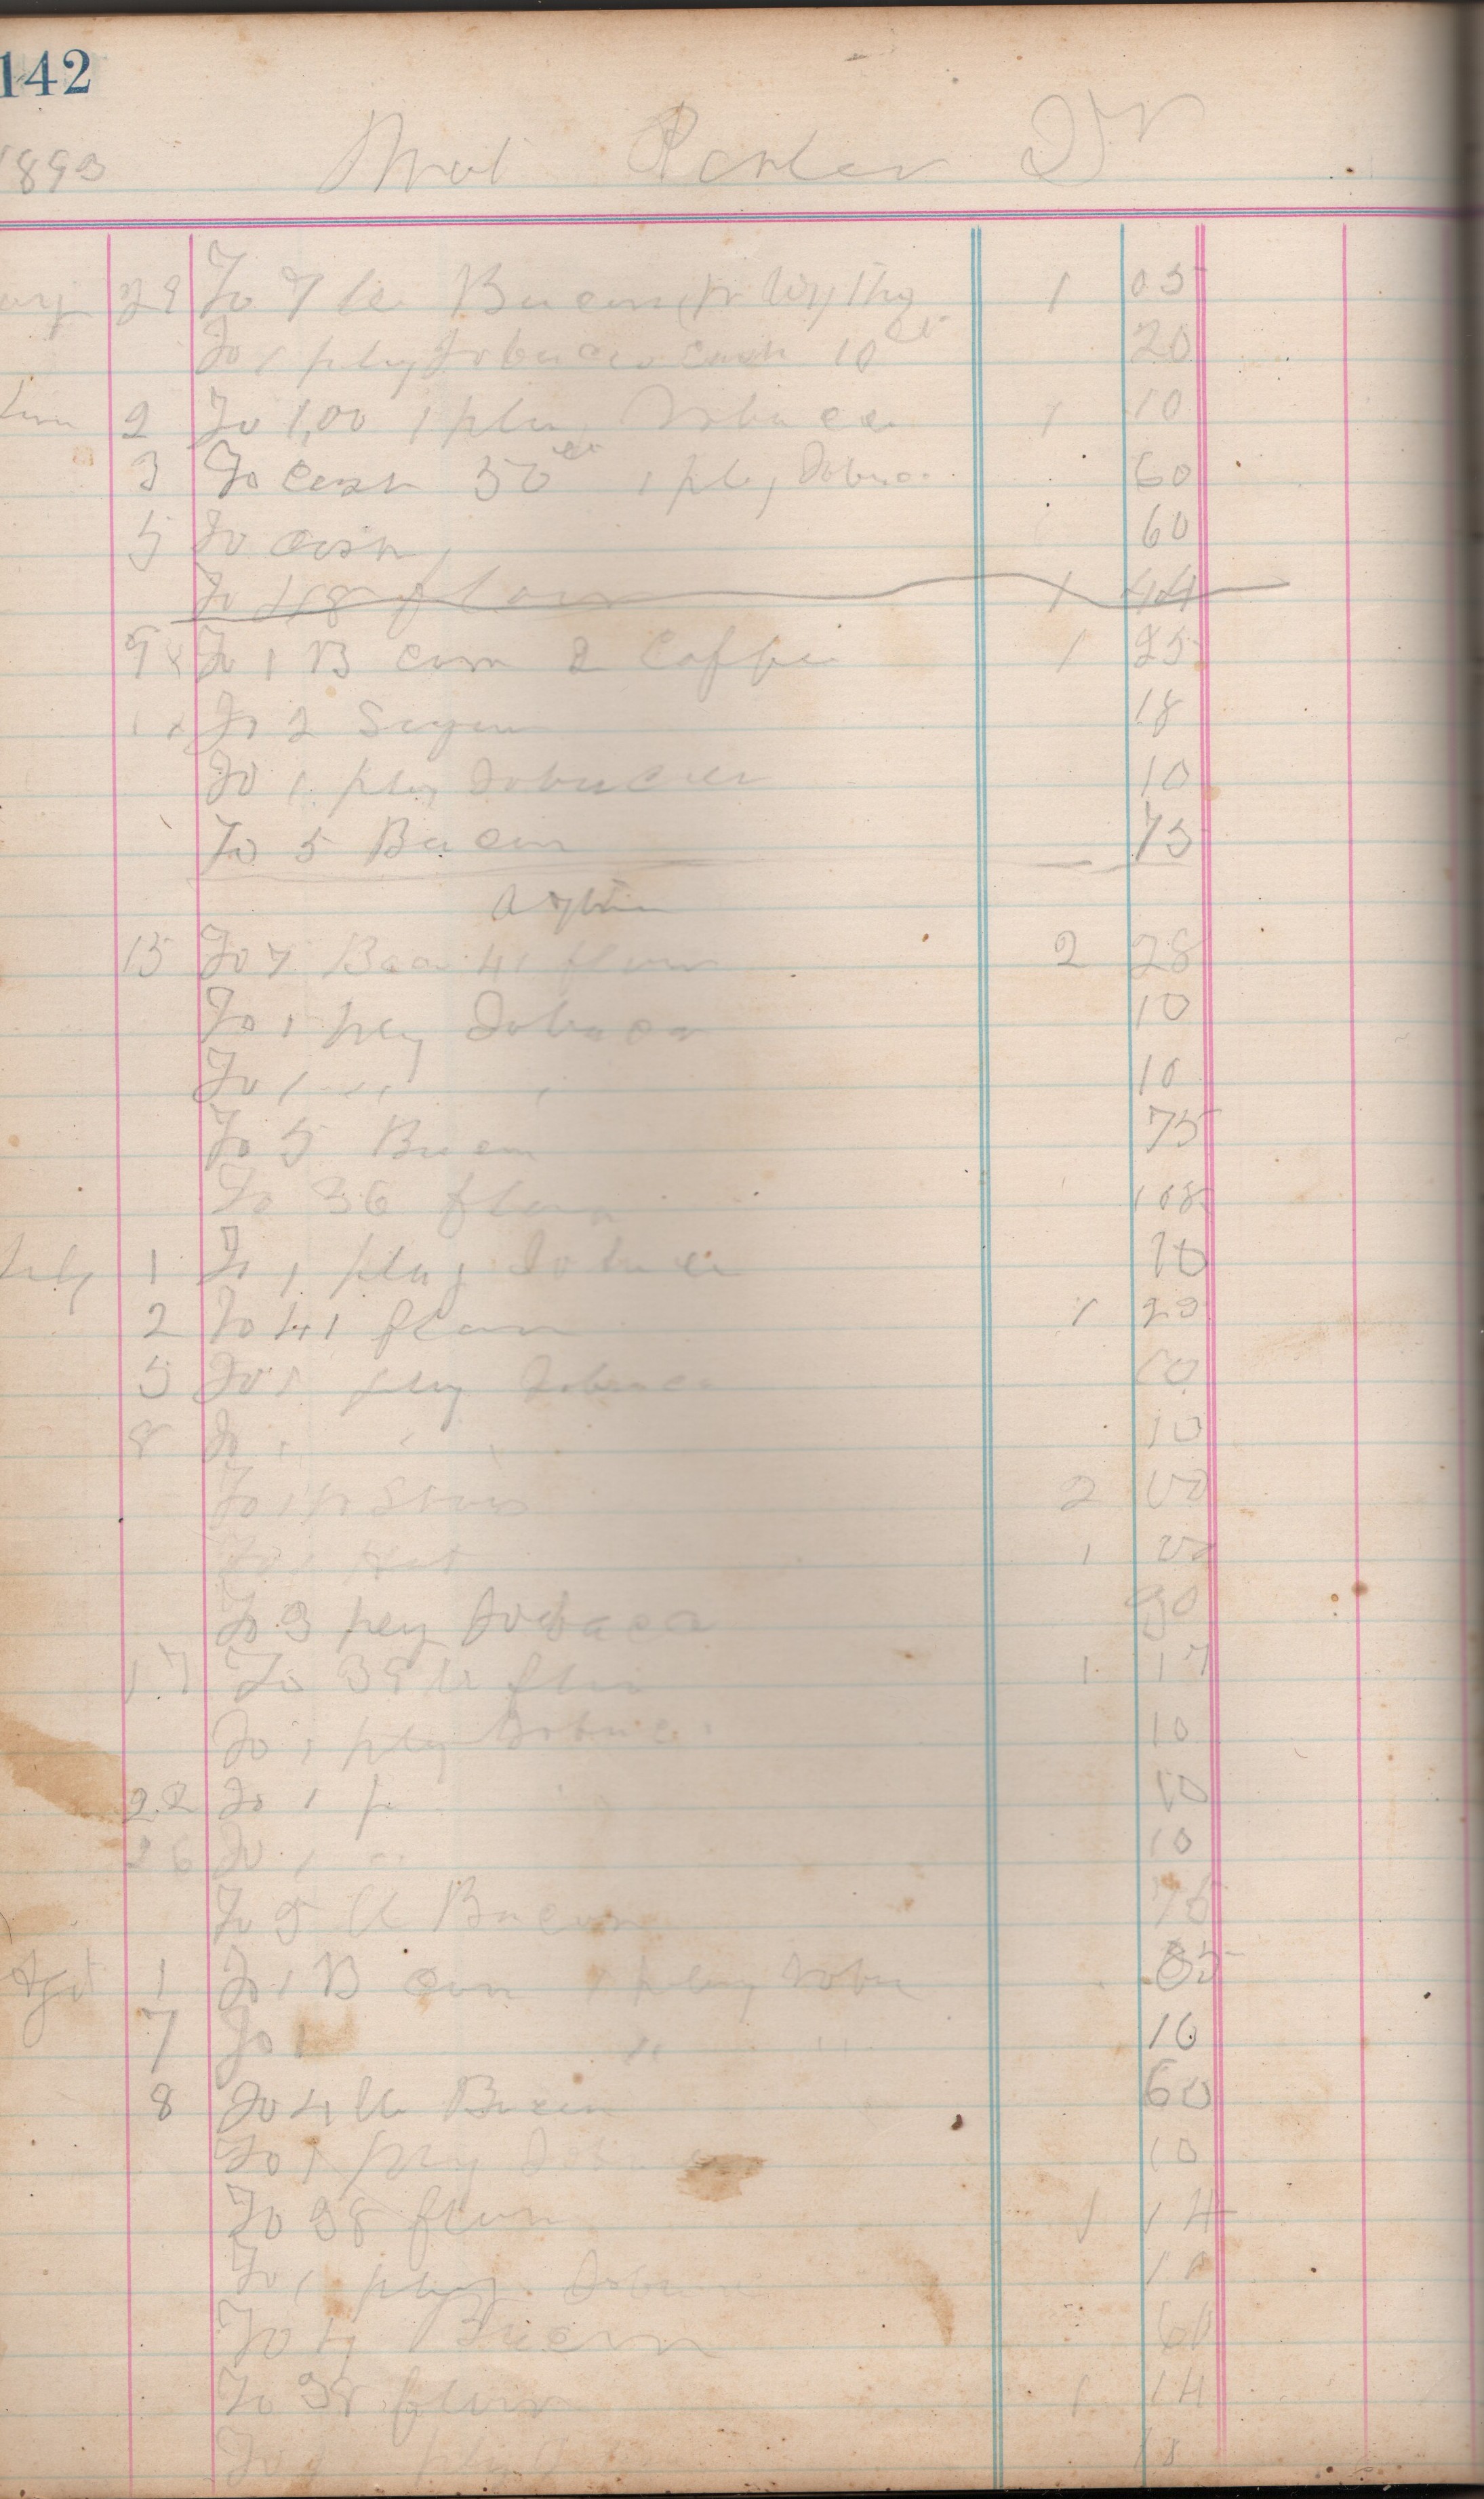 142
1893 Dr
29 To 7 lb Bacon 1 05
To 1 plug Tobacco Cash 10 cts 20
2 To 1,00 1 plug Tobacco 1 10
3 To cash 50 cts 1 plug Tobacco 60
5 To cash 60
To 48 flour 1 44
To 1 B corn 2 Coffee 1 25
To 2 Sugar 18
To 1 plug Tobacco 10
To 5 Bacon 75
15 To 7 Bacon 41 flour 2 28
To 1 plug Tobacco 10
To 1 " " 10
To 5 Bacon 75
To 36 flour 108
July 1 To 1 plug Tobacco 10
2 To 41 flour 1 23
5 To 1 plug Tobacco 10
8 To 1 " " 10
To 1 pr Shoes 2 00
To 1 Hat 1 00
To 3 plug Tobacco 30
17 To 39 lb flour 1 17
To 1 plug Tobacco 10
22 To 1 p 10
26 To 1 " 10
To 5 lb Bacon 75
1 To 1 B corn 1 plug Tobac 85
7 To 1 " " 10
8 To 4 lb Bacon 60
To 1 plug Tobacco 10
To 38 flour 1 14
To 1 plug Tobacco 10
To 4 Bacon 60
To 38 flour 1 14
To 1 plug